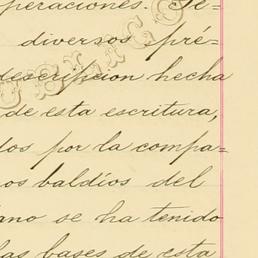 peraciones. Se=
diversos pré=
descripcion hecha
de esta escritura,
dos por la compa=
os baldíos del
ano se ha tenido
las bases de esta